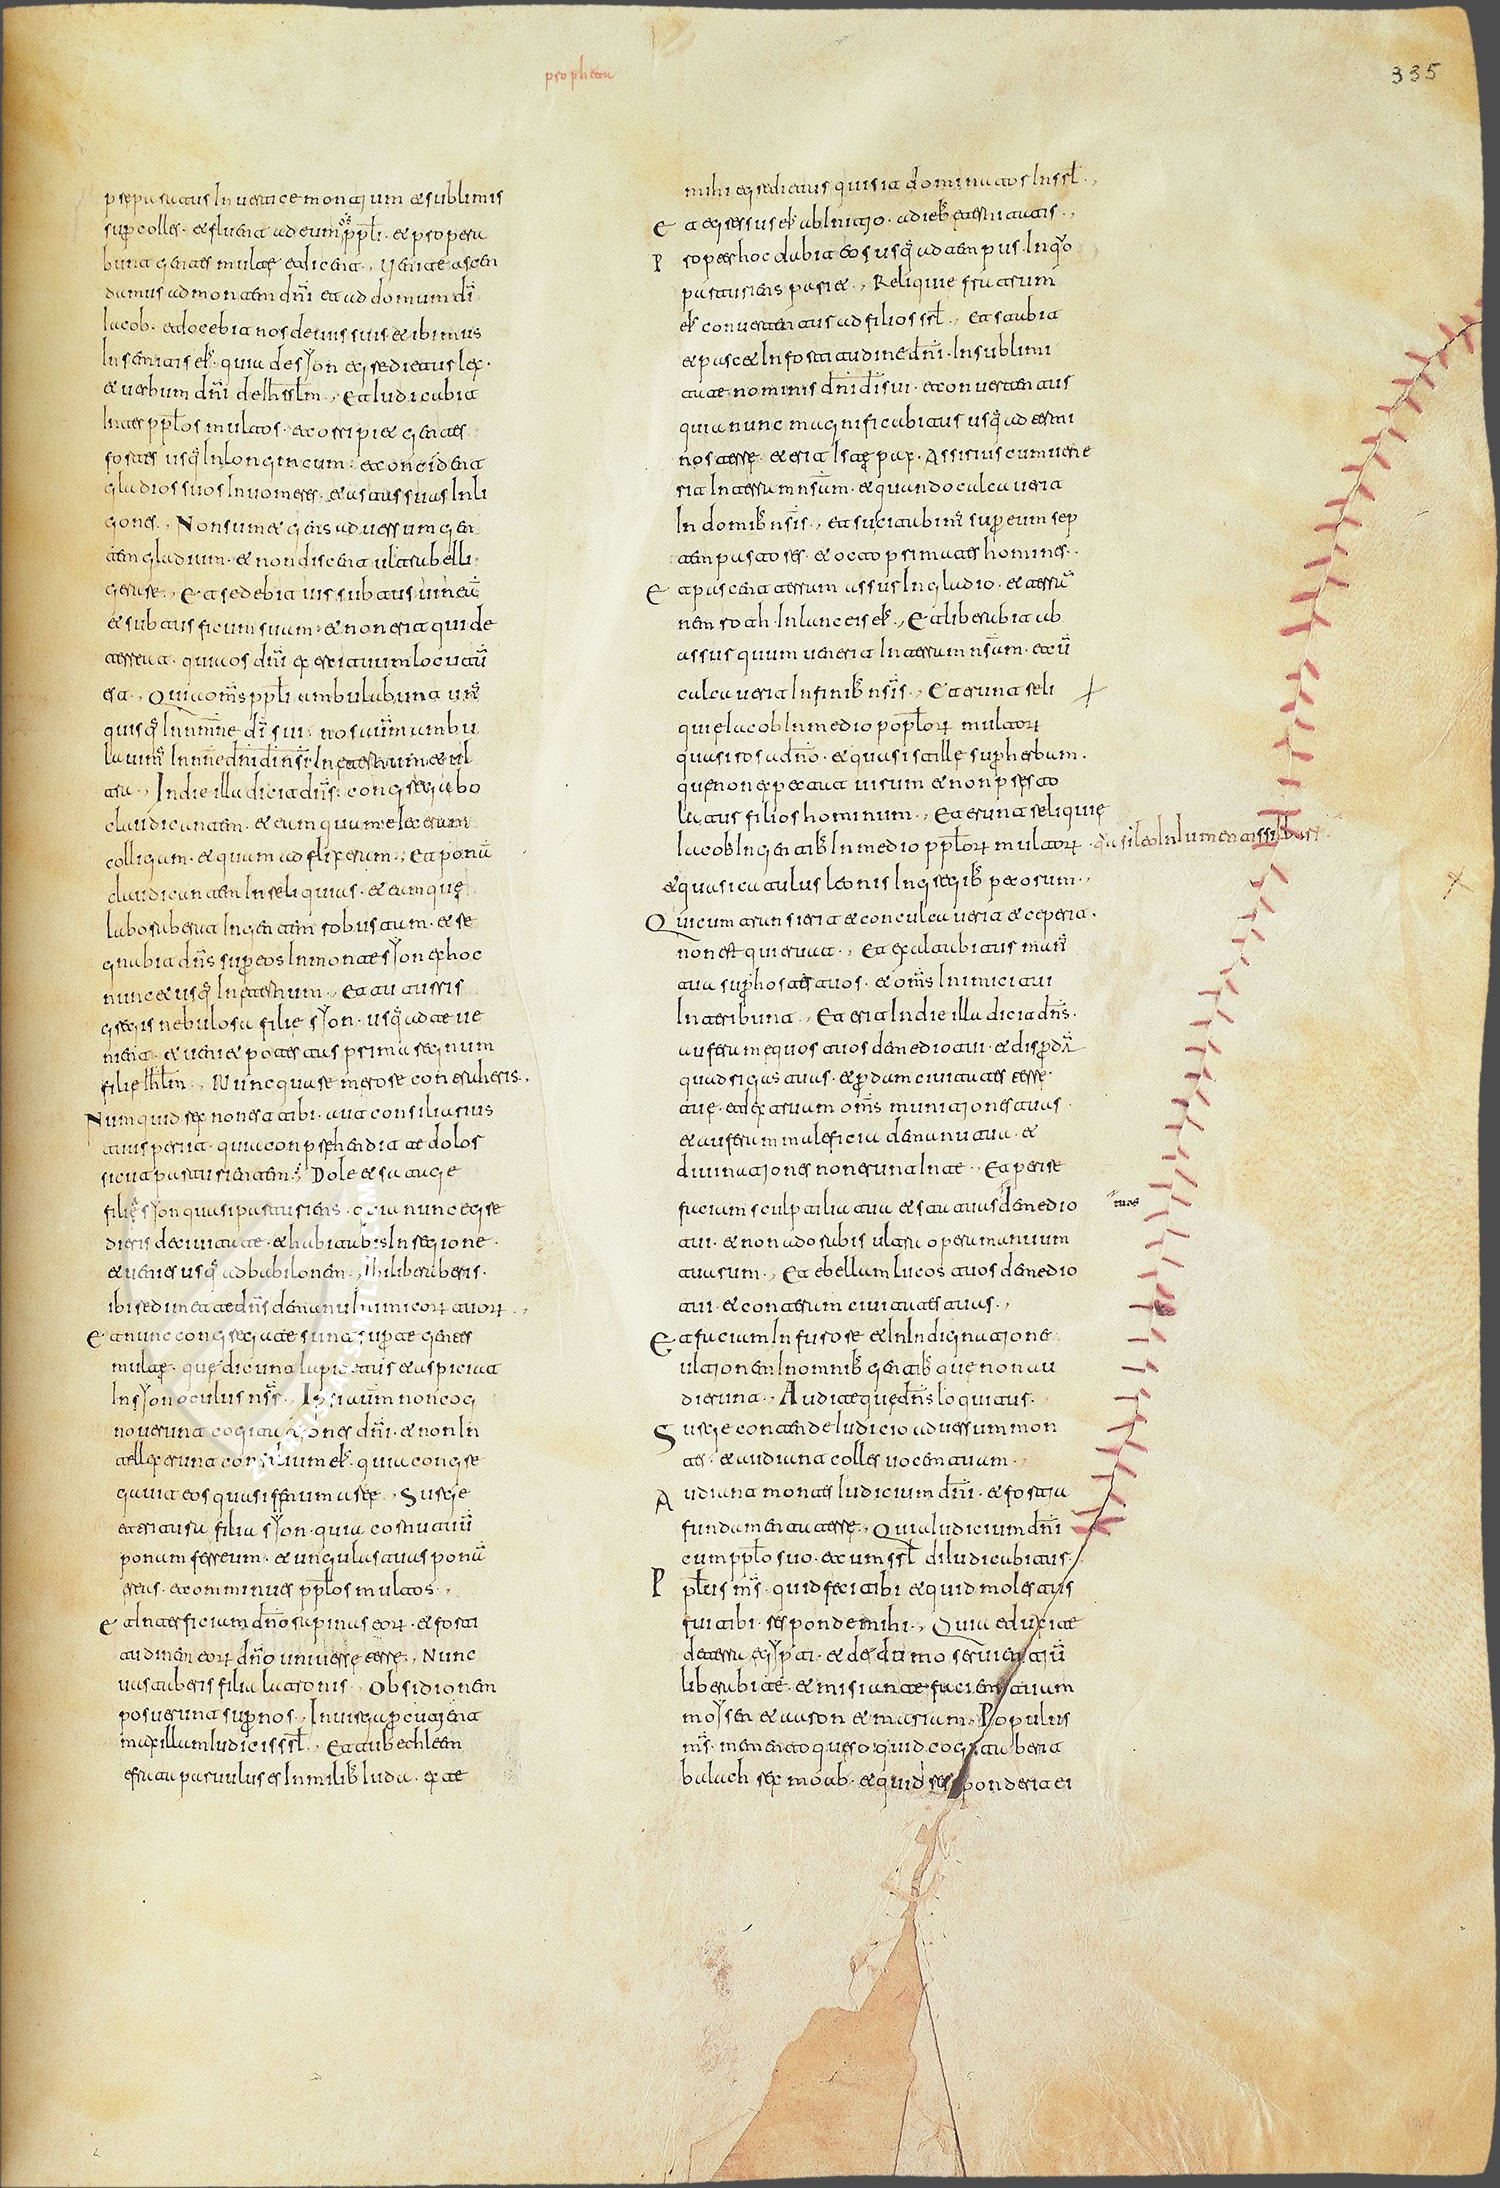 prophetarum
335
preparatus In uertice montium et sublimis
super colles · et fluent ad eum om̅s pp̅li · et propera
bunt gentes multe et dicent ·, Uenite ascen
damus ad montem dn̅i et ad domum di̅
Iacob · et docebit nos de uiis suis et ibimus
In semitis ei; · quia de syon egredietur lex ·
et uerbum dn̅i de Ihrslm̅ ·, Et Iudicabit
Inter pp̅los multos · et corripiet gentes
fortes usq; In longincum : et concident
gladios suos In uomeres · et astas suas In li
gones ·, Non sumet gens aduersum gen
tem gladium · et non discent ultra belli
gerare ·, Et sedebit uir subtus uinea̅
et subtus ficum suam · et non erit qui de
terreat · quia os dn̅i exercituum locutu̅
est ·, Quia om̅s pp̅li ambulabunt un̅
quisq; In nm̅ne di̅ sui · nos aut̅m ambu
labim̅ In nm̅e dn̅i di̅ nsi̅ In eternum et ul
tra ·, In die illa dicit dn̅s · congregabo
claudicantem · et eam quam eieceram
colligam · et quam adflixeram ·, Et ponā
claudicantem In reliquias · et eam que
laboraberat In gentem robustam · et re
gnabit dn̅s super eos In monte syon ex hoc
nunc et usq; In eternum ·, Et tu turris
gregis nebulosa filie syon · usq; ad te ue
nient · et ueniet potestas prima regnum
filie Ihrlm̅ ·, Nunc quare merore contraheris ·,
Numquid rex non est tibi · aut consiliarius
tuus periit · quia conprehendit te dolor
sicut parturientem ·, Dole et satage
filie syon quasi parturiens · quia nunc egre
dieris de ciuitate · et habitabis In regione ·
et uenies usq; ad babilonem ·, Ibi liberaberis ·
ibi redimet te dn̅s de manu Inimicor̅ tuor̅ ·,
Et nunc congregate sunt super te gentes
multe · que dicunt lapidetur et aspiciat
In syon oculus ns̅r ·, Ipsi aut̅m non cog
noberunt cogitationes dn̅i · et non In
tellexerunt consilium ei; · quia congre
gabit eos quasi fenum aree ·, Surge
et tritura filia syon · quia cornu tuū
ponam ferreum · et ungulas tuas ponā
ereas · et comminues pp̅los multos ·,
Et Interficium dn̅o rapinas eor̅ · et forti
tudinem eor̅ dn̅o uniuerse terre ·, Nunc
uastaberis filia latronis ·, Obsidionem
posuerunt super nos ·, In uirga percutient
maxillam Iudicis srl̅ ·, Et tu bethleem
efrata parbulus es In milib; Iuda · ex te
mihi egredietur qui sit dominator In srl̅ ·,
Et egressus ei; ab Initio · a dieb; eternitatis ·,
Propter hoc dabit eos usq; ad tempus · In quo
parturiens pariet ·, Reliquie fratrum
ei; conuertentur ad filios srl̅ ·, Et stabit
et pascet In fortitudine dn̅i · In sublimi
tate nominis dn̅i di̅ sui · et conuertentur
quia nunc magnificabitur usq; ad termi
nos terre · et erit Iste pax · Assirius cum uene
rit In terram ns̅am · et quando calcauerit
In domib; ns̅is ·, et suscitabim̅ super eum sep
tem pastores · et octo primates homines ·
Et pascent terram assur In gladio · et terrā
nemroth · In lanceis ei; ·, Et liberabit ab
assur quum uenerit In terram ns̅am · et cū
calcauerit In finib; ns̅is ·, Et erunt reli
quie Iacob In medio popl̅or̅ multor̅
quasi ros a dn̅o · et quasi stille super herbam ·
que non expectat uirum et non presto
latur filios hominum ·, Et erunt reliquie
Iacob In gentib; In medio pp̅lor̅ multor̅ · quasi leo In Iumentis siluar̅
et quasi catulus leonis In gregib; pecorum ·,
Qui cum transierit et conculcauerit et ceperit ·
non est qui eruat ·, Et exaltabitur man̅
tua super hostes tuos · et om̅s Inimici tui
Interibunt ·, Et erit In die illa dicit dn̅s ·
auferam equos tuos de medio tui · et disperdā
quadrigas tuas · et perdam ciuitates terre
tue · et destruam om̅s munitiones tuas ·
et auferam maleficia de manu tua · et
diuinationes non erunt In te ·, Et perire
faciam sculptilia tua et statuas de medio
tuas
tui · et non adorabis ultra opera manuum
tuarum ·, Et ebellam lucos tuos de medio
tui · et conteram ciuitates tuas ·,
Et faciam In furore et In Indignatione
ultionem In omnib; gentib; que non au
dierunt ·, Audite que dn̅s loquitur ·
Surge contende Iudicio aduersum mon
tes · et audiant colles uocem tuam ·
Audiant montes Iudicium dn̅i · et fortia
fundamenta terre ·, Quia Iudicium dn̅i
cum pp̅lo suo · et cum srl̅ diiudicabitur ·
Ppl̅e ms̅ · quid feci tibi et quid molestus
fui tibi · responde mihi ·, Quia eduxi te
de terra egypti · et de domo serbientiū
liberabi te · et misi ante faciem tuam
moysen et aaron et mariam ·, Populus
ms̅ · memento quero quid cogitaberit
balach rex moab · et quid responderit ei